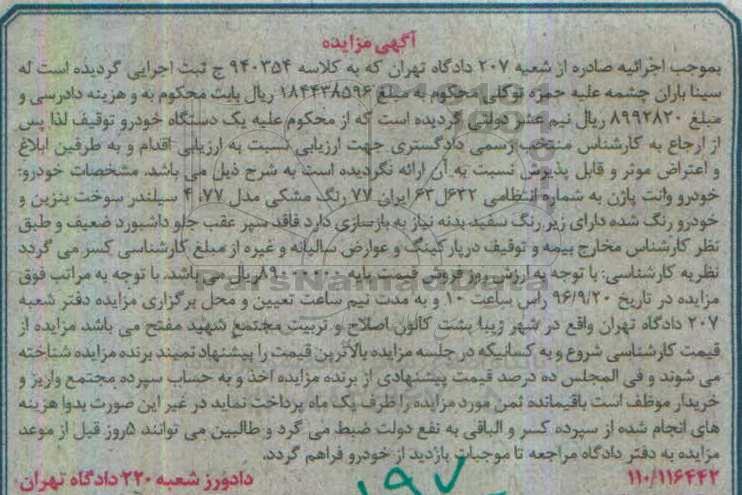 آگهی مزایده
بموجب اجرائیه صادره از شعبه ۲۰۷ دادگاه تهران که به کلاسه ۹۴۰۳۵۴ ج ثبت اجرایی گردیده است له
سینا باران چشمه علیه حمزه توکلی محکوم به مبلغ ۱۸۴۴۳۸۵۹۶ ریال بابت محکوم به و هزینه دادرسی و
مبلغ ۸۹۹۲۸۲۰ ریال نیم عشر دولتی گردیده است که از محکوم علیه یک دستگاه خودرو توقیف لذا پس
از ارجاع به کارشناس منتخب رسمی دادگستری جهت ارزیابی نسبت به ارزیابی اقدام و به طرفین ابلاغ
و اعتراض موثر و قابل پذیرش نسبت به آن ارائه نگردیده است به شرح ذیل می باشد. مشخصات خودرو:
خودرو وانت پاژن به شماره انتظامی ۶۳۲ل۶۳ ایران ۷۷ رنگ مشکی مدل ۷۷، ۴ سیلندر سوخت بنزین و
خودرو رنگ شده دارای زیر رنگ سفید بدنه نیاز به بازسازی دارد فاقد سپر عقب جلو داشبورد ضعیف و طبق
نظر کارشناس مخارج بیمه و توقیف در پارکینگ و عوارض سالیانه و غیره از مبلغ کارشناسی کسر می گردد
نظریه کارشناسی: با توجه به ارزش روز فروش قیمت پایه ۸۹۰۰۰۰۰۰ ریال می باشد. با توجه به مراتب فوق
مزایده در تاریخ ۹۶/۹/۲۰ راس ساعت ۱۰ و به مدت نیم ساعت تعیین و محل برگزاری مزایده دفتر شعبه
۲۰۷ دادگاه تهران واقع در شهر زیبا پشت کانون اصلاح و تربیت مجتمع شهید مفتح می باشد مزایده از
قیمت کارشناسی شروع و به کسانیکه در جلسه مزایده بالاترین قیمت را پیشنهاد نمیند برنده مزایده شناخته
می شوند و فی المجلس ده درصد قیمت پیشنهادی از برنده مزایده اخذ و به حساب سپرده مجتمع واریز و
خریدار موظف است باقیمانده ثمن مورد مزایده را ظرف یک ماه پرداخت نماید در غیر این صورت بدوا هزینه
های انجام شده از سپرده کسر و الباقی به نفع دولت ضبط می گرد و طالبین می توانند ۵روز قبل از موعد
مزایده به دفتر دادگاه مراجعه تا موجبات بازدید از خودرو فراهم گردد.
۱۱۰/۱۱۶۴۴۲ دادورز شعبه ۲۲۰ دادگاه تهران
ParsNamadData
۱۹۷